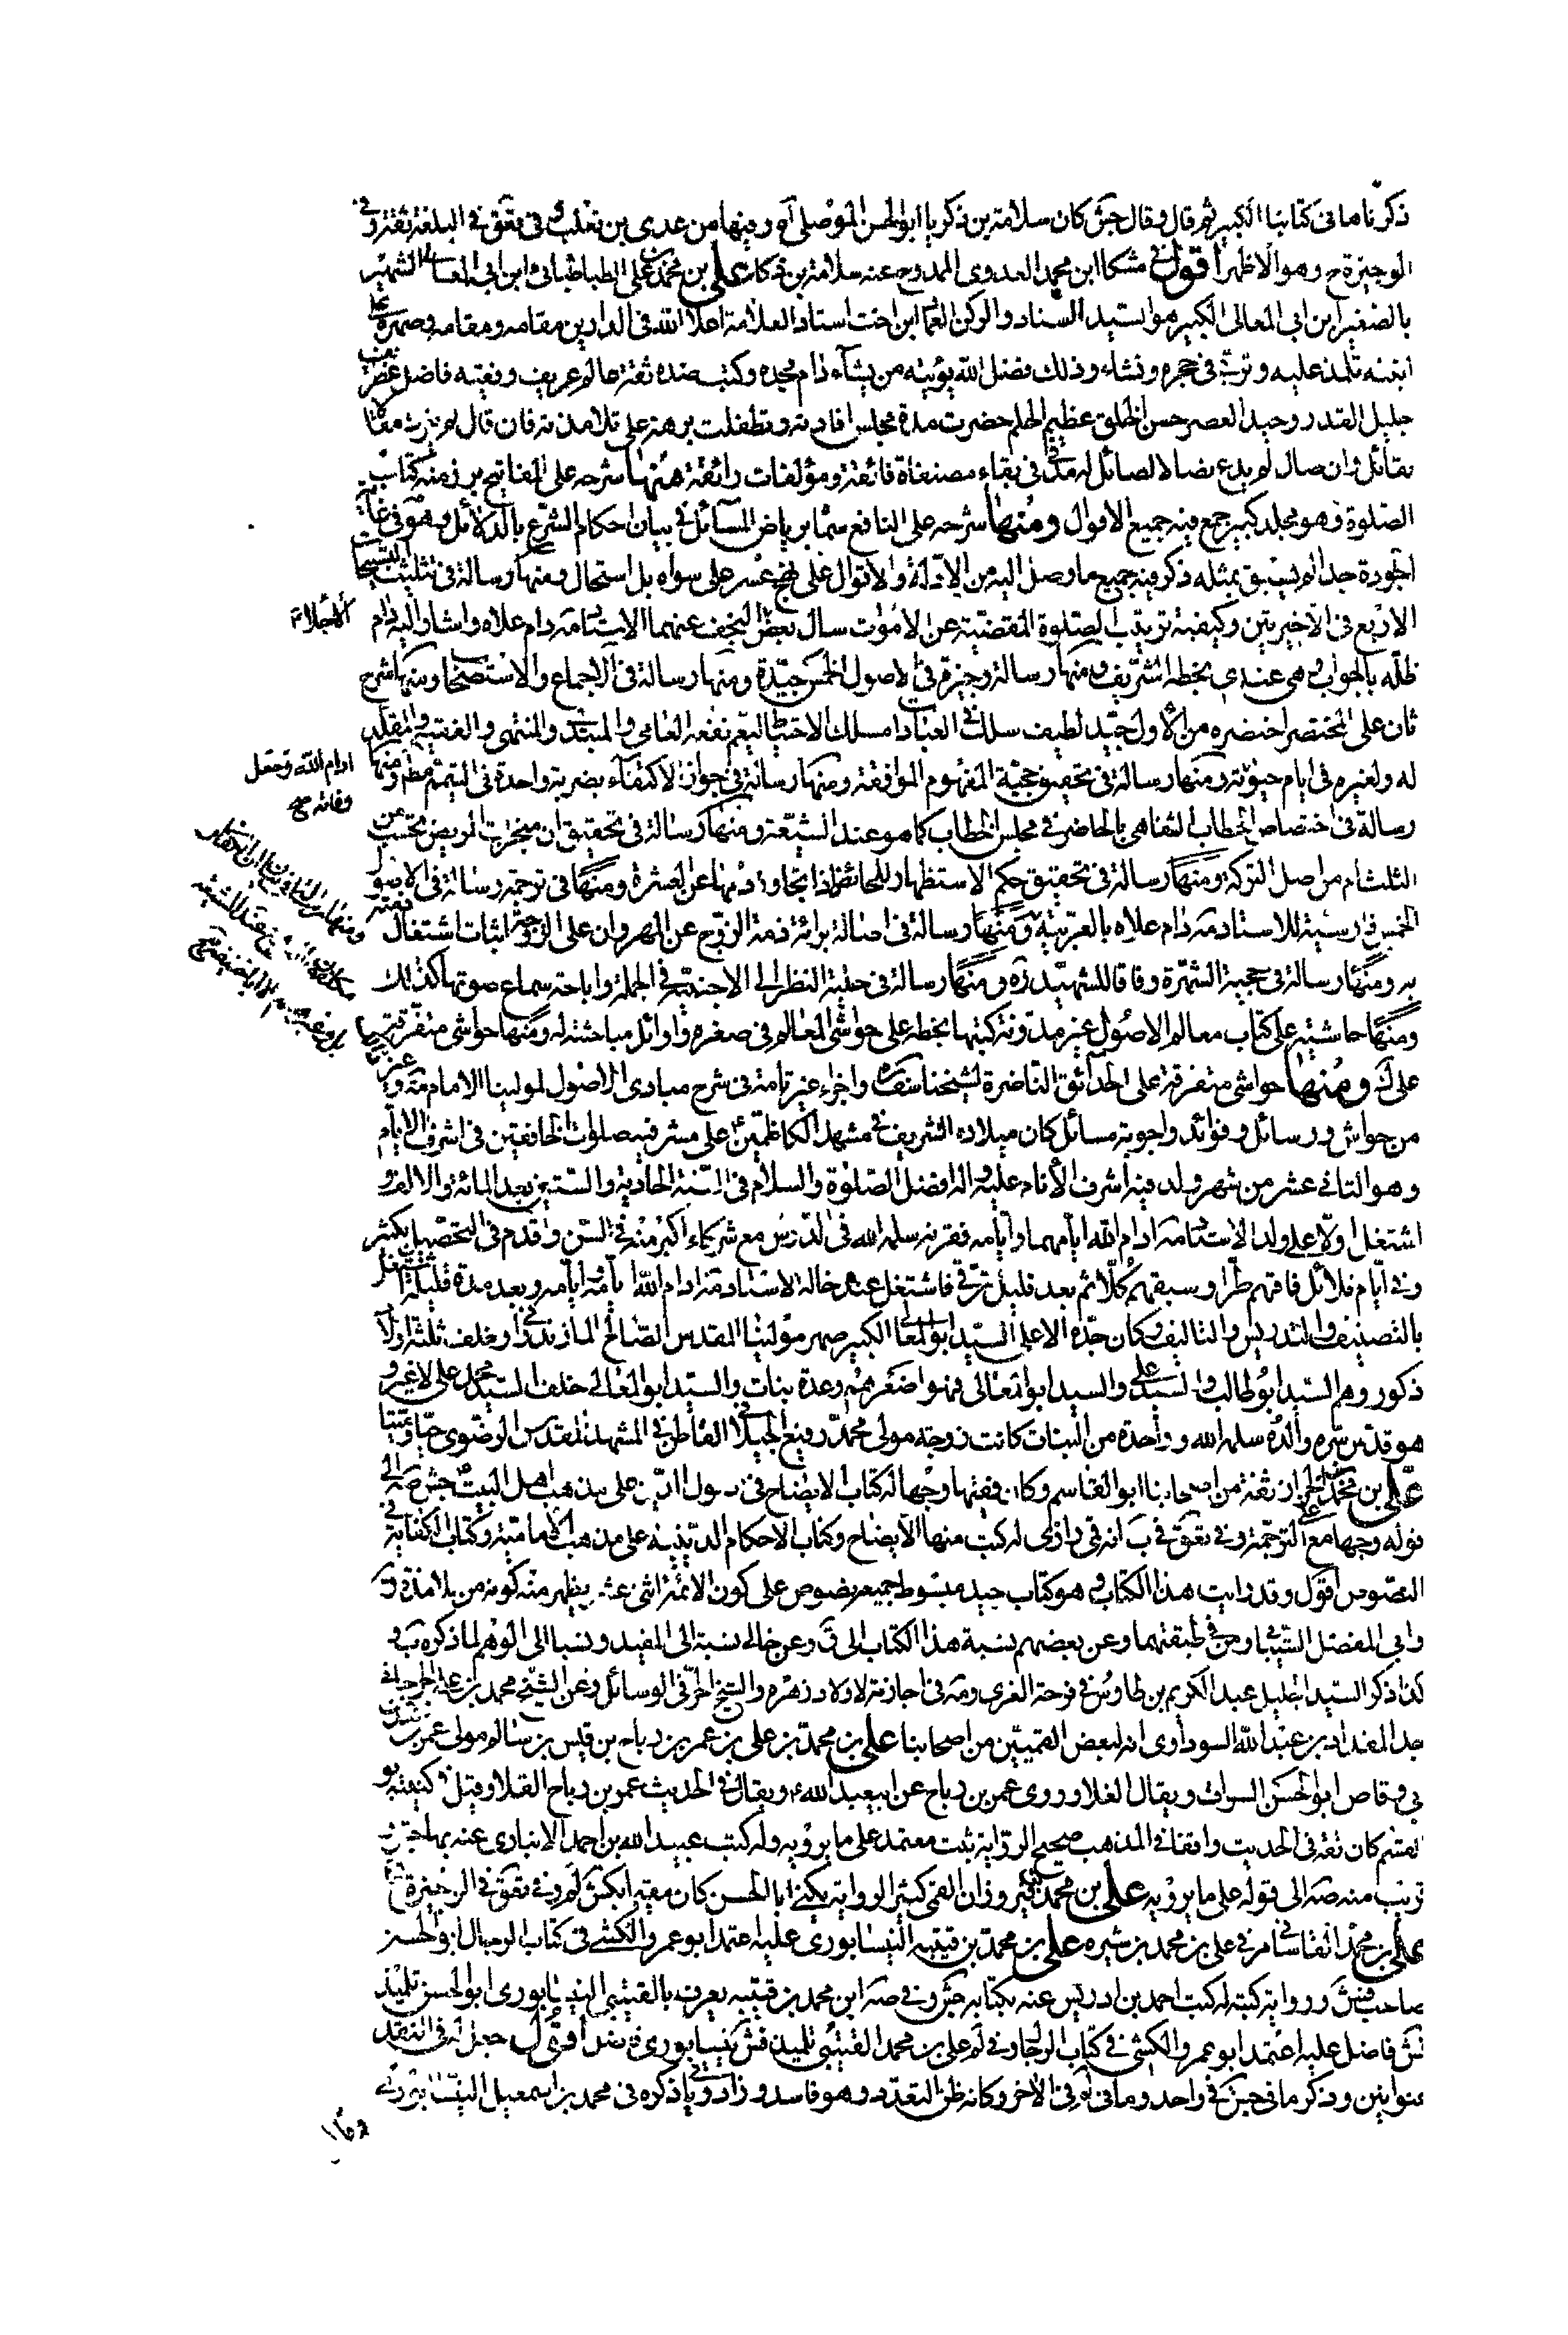 ذكرناها في كتابنا الكبير ثم قال وقال جش كان سلامة بن ذكريا ابو الحسن الموصلي آه وفيها من عدي بن تغلب وفي تعق في البلغة ثقة وفي
الوجيزة ح وهو الاظهر اقول في مشكا ابن محمد العدوي الممدوح عنه سلامة بن ذكا علي بن محمد علي الطباطبائي ابن ابي المعالي الشهير
بالصغير ابن ابي المعالي الكبير هو السيد السناد والركن العماد ابن اخت استاد العلامة اعلا الله في الدارين مقامه ومقامه وصهره على
ابنته تلمذ عليه وتربى في حجره ونشاء وذلك فضل الله يؤتيه من يشاء دام مجده وكنيته ثقة عالم عريف وفقيه فاضل غطريف
جليل القدر وحيد العصر حسن الخلق عظيم الحلم حضرت مدة مجلس افادته وتطفلت برهة على تلامذته فان قال لم يترك مقالا
لقائل وان صال لم يدع نصالا لصائل له مد في بقاه مصنفاة فائقة ومؤلفات رائقة منها شرحه على المفاتيح برز منه كتاب
الصلوة وهو مجلد كبير جمع فيه جميع الاقوال ومنها شرحه على النافع سماه رياض المسائل في بيان احكام الشرع بالدلائل وهو في غاية
الجودة جدا لم يسبق بمثله ذكر فيه جميع ما وصل اليه من الادلة والاقوال على نهج عسر على سواه بل استحال ومنها رسالة في تثليث التسبيحات
الاربع في الاخيرتين وكيفية ترتيب الصلوة المقضية عن الاموات سال بعض النجف عنهما الاستاد مه دام علاه واشار اليه دام
اكد اجلاء
ظله بالجواب وهي عندي بخطه الشريف ومنها رسالة وجيزة في الاصول الخمس جيدة ومنها رسالة في الاجماع والاستصحاب ومنها شرح
ثان على المختصر اختصره من الاول جيد لطيف سلك في العبادات مسلك الاحتياط ليعم نفعه العامي والمبتدي والمنتهي والفقيه والمقلد
له ولغيره في ايام حيوته ومنها رسالة في تحقيق حجية المفهوم الموافقة ومنها رسالة في جواز الاكتفاء بضربة واحدة في التيمم مط ومنها
ادام الله وجعل
وفاته صح
رسالة في اختصاص الخطاب الشفاهي بالحاضر في مجلس الخطاب كما هو عند الشيعة ومنها رسالة في تحقيق ان منجزات المريض تحتسب من
الثلث ام من اصل التركة ومنها رسالة في تحقيق حكم الاستظهار للحائض اذا تجاوز دمها عن العشرة ومنها في ترجمة رسالة في الاصول
الخمس فارسية للاستاد مه دام علاه بالعربية ومنها رسالة في اصالة برائة ذمة الزوج عن المهر وان على الزوجة اثبات اشتغال ذمته
به ومنها رسالة في حجية الشهرة وفاقا للشهيد ره ومنها رسالة في حلية النظر الى الاجنبية في الجملة واباحة سماع صوتها كذلك
ومنها حاشية على كتاب معالم الاصول غير مدونة كتبها بخطه على حواشي المعالم في صغره واوائل مباحثته له ومنها حواشي متفرقة
على ك ومنها حواشي متفرقة على الحدائق الناضرة لشيخنا يوسف ره واجزاء غير تامة في شرح مبادي الاصول لمولينا الامام مة وغيرها
من حواش ورسائل وفوائد واجوبة مسائل كان ميلاده الشريف في مشهد الكاظمين على مشرفيه صلوات الخافقين في اشرف الايام
وهو الثاني عشر من شهر ولد فيه اشرف الانام عليه واله افضل الصلوة والسلام في السنة الحادية والستين بعد المائة والالف و
اشتغل اولا على ولد الاستاد مه ادام الله ايامهما وايامه فقرنه سلمه الله في الدرس مع شركاء اكبر منه في السن واقدم في التحصيل بكثير
وفي ايام قلائل فاقهم طرا وسبقهم كلا ثم بعد قليل ترقى فاشتغل عند خاله الاستاد مه ادام الله ايامه وايامه وبعد مدة قليلة اشتغل
بالتصنيف والتدريس والتاليف وكان جده الاعلى السيد ابو المعالي الكبير صهر مولينا المقدس الصالح المازندراني وخلف ثلثة اولاد
ذكور وهم السيد ابو طالب والسيد علي والسيد ابو المعالي وهو اصغرهم وعدة بنات والسيد ابو المعالي خلف السيد محمد علي لا غير و
هو قدس سره والده سلمه الله وواحدة من البنات كانت زوجة مولى محمد رفيع الجيلاني القاطن في المشهد المقدس الرضوي حيا وميتا
علي بن محمد الخزاز ثقة من اصحابنا ابو القاسم وكان فقيها وجها له كتاب الايضاح في اصول الدين على مذهب اهل البيت ع جش صه الى
قوله وجها مع الترجمة وفي تعق في ب انه قمي رازي له كتب منها الايضاح وكتاب الاحكام الدينية على مذهب الامامية وكتاب الكفاية في
النصوص اقول وقد رايت هذا الكتاب وهو كتاب جيد مبسوط جميعه نصوص على كون الائمة اثنى عشر يظهر منه كونه من تلامذة ق
وابي المفضل الشيباني ومن في طبقتهما وعن بعضهم نسبة هذا الكتاب الى ق وعن خالي نسبة الى المفيد ونسبا الى الوهم لما ذكره ب و
كذا ذكر السيد الجليل عبد الكريم بن طاوس في فرحة الغري ومه في اجازته لاولاد زهره والشيخ الحر في الوسائل وعن الشيخ محمد بن علي الجرجاني
جد المقداد بن عبد الله السوداوي انه لبعض القميين من اصحابنا علي بن محمد بن علي بن عمر بن رباح بن قيس بن سالم مولى عمر بن سعد بن
ابي وقاص ابو الحسن السواق ويقال القلا وروى عمر بن رباح عن ابي عبد الله ع ويقال في الحديث عمر بن رباح القلا وقيل كنيته ابو
القسم كان ثقة في الحديث واقفا في المذهب صحيح الرواية ثبت معتمد على ما يرويه وله كتب عبيد الله بن احمد الانباري عنه بها جش و
قريب منه صه الى قوله على ما يرويه علي بن محمد بن فيروزان القمي كثير الرواية يكنى ابا الحسن كان مقيما بكش لم وفي تعق في الوجيزة ح
علي بن محمد القاساني مر في علي بن محمد بن شيره علي بن محمد بن قتيبه النيسابوري عليه اعتمد ابو عمرو الكشي في كتاب الرجال ابو الحسن
صاحب فش ورواية كتبه له كتب احمد بن ادريس عنه بكتابه جش وفي صه ابن محمد بن قتيبه يعرف بالقتيبي النيسابوري ابو الحسن تلميذ
فش فاضل عليه اعتمد ابو عمرو الكشي في كتاب الرجال وفي لم علي بن محمد القتيبي تلميذ فش نيسابوري فاضل اقول جعل له في النقد
عنوانين وذكر ما في جش في واحد وما في لم في الاخر وكانه ظن التعدد وهو فاسد وزاد وياتي ذكره في محمد بن اسمعيل النيسابوري
وما